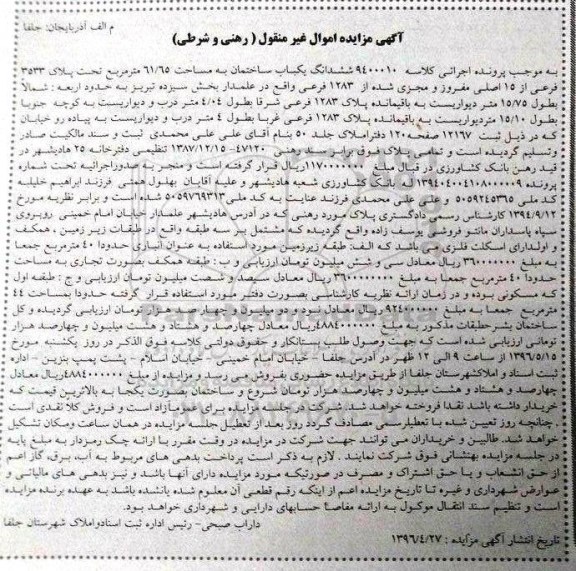 م الف آذربایجان: جلفا
آگهی مزایده اموال غیر منقول ( رهنی و شرطی)
به موجب پرونده اجرائی کلاسه ۹۴۰۰۰۱۰ ششدانگ یکباب ساختمان به مساحت ۶۱/۶۵ مترمربع تحت پلاک ۳۵۳۳
فرعی از ۱۵ اصلی مفروز و مجزی شده از ۱۲۸۳ فرعی واقع در علمدار بخش سیزده تبریز به حدود اربعه : شمالاً
بطول ۱۵/۷۵ متر دیواریست به باقیمانده پلاک ۱۲۸۳ فرعی شرقا بطول ۴/۰۴ متر درب و دیواریست به کوچه جنوبا
بطول ۱۵/۱۰ متردیواریست به باقیمانده پلاک ۱۲۸۳ فرعی غربا بطول ۴ متر درب و دیواریست به پیاده رو خیابان
که در ذیل ثبت ۱۲۱۹۷ صفحه۱۲۰ دفتراملاک جلد ۵۰ بنام آقای علی علی محمدی ثبت و سند مالکیت صادر
وتسلیم گردیده است و تمامی پلاک فوق برابر سند رهنی ۴۷۱۲۰- ۱۳۸۷/۱۲/۱۵ تنظیمی دفترخانه ۲۵ هادیشهر در
قید رهن بانک کشاورزی در قبال مبلغ ۱۱۷۰۰۰۰۰۰۰ریال قرار گرفته است و منجر به صدوراجرائیه تحت شماره
پرونده ۱۳۹۴۰۴۰۰۴۱۰۸۰۰۰۰۰۹ له بانک کشاورزی شعبه هادیشهر و علیه آقایان بهلول همتی فرزند ابراهیم خلیلیه
کد ملی ۵۰۵۹۲۴۵۳۶۵ و علی علی محمدی فرزند عنایت به کد ملی۵۰۵۹۷۶۹۳۱۳ شده است و برابر نظریه مورخ
۱۳۹۴/۹/۱۲ کارشناس رسمی دادگستری پلاک مورد رهنی که در آدرس هادیشهر علمدار خیابان امام خمینی روبروی
سپاه پاسداران مانتو فروشی یوسف زاده واقع گردیده که مشتمل بر سه طبقه واقع در طبقات زیر زمین ، همکف
و اول دارای اسکلت فلزی می باشد که الف: طبقه زیرزمین مورد استفاده به عنوان انباری حدودا ۴۰ مترمربع جمعا
به مبلغ ۳۶۰۰۰۰۰۰۰ ریال معادل سی و شش میلیون تومان ارزیابی و ب : طبقه همکف بصورت تجاری به مساحت
حدودا ۴۰ مترمربع جمعا به مبلغ ۳۶۰۰۰۰۰۰۰۰ ریال معادل سیصد و شصت میلیون تومان ارزیابی و ج : طبقه اول
که مسکونی بوده و در زمان ارائه نظریه کارشناسی بصورت دفتر مورد استفاده قرار گرفته حدودا بمساحت ۴۴
مترمربع جمعا به مبلغ ۹۲۴۰۰۰۰۰۰ ریال معادل نود و تومان ارزیابی گردیده و کل
ساختمان بشرح طبقات مذکور به مبلغ ۴۸۸۴۰۰۰۰۰۰ریال معادل چهارصد و هشتاد و هشت میلیون و چهارصد هزار
تومانی ارزیابی شده است که جهت وصول طلب بستانکار و حقوق دولتی کلاسه فوق الذکر در روز یکشنبه مورخ
۱۳۹۶/۵/۱۵ از ساعت ۹ الی ۱۲ ظهر در آدرس جلفا - خیابان امام خمینی - خیابان اسلام - پشت پمپ بنزین - اداره
ثبت اسناد و املاک شهرستان جلفا از طریق مزایده حضوری بفروش می رسد و مزایده از مبلغ ۴۸۸۴۰۰۰۰۰۰ریال معادل
چهارصد و هشتاد و هشت میلیون و چهارصد هزار تومان شروع و ساختمان بصورت یکجا به بالاترین قیمت که
خریدار داشته باشد نقدا فروخته خواهد شد. شرکت در جلسه مزایده برای عموم آزاد است و فروش کلا نقدی است
. چنانچه روز تعیین شده با تعطیل رسمی مصادف گردد روز بعد از تعطیل جلسه مزایده در همان ساعت ومکان تشکیل
خواهد شد. طالبین و خریداران می توانند جهت شرکت در مزایده در وقت مقرر با ارائه چک رمزدار به مبلغ پایه
در جلسه مزایده بهشتانی فوق شرکت نمایند . لازم به ذکر است پرداخت بدهی های مربوط به آب، برق، گاز اعم
از حق انشعاب و یا حق اشتراک و مصرف در صورتیکه مورد مزایده دارای آنها باشد و نیز بدهی های مالیاتی و
عوارض شهرداری و غیره تا تاریخ مزایده اعم از اینکه رقم قطعی آن معلوم شده یانشده باشد به عهده برنده مزایده
است و تنظیم سند انتقال موکول به ارائه مفاصا حسابهای دارایی و شهرداری خواهد بود.
داراب صبحی- رئیس اداره ثبت اسنادواملاک شهرستان جلفا
تاریخ انتشار آگهی مزایده : ۱۳۹۶/۴/۲۷